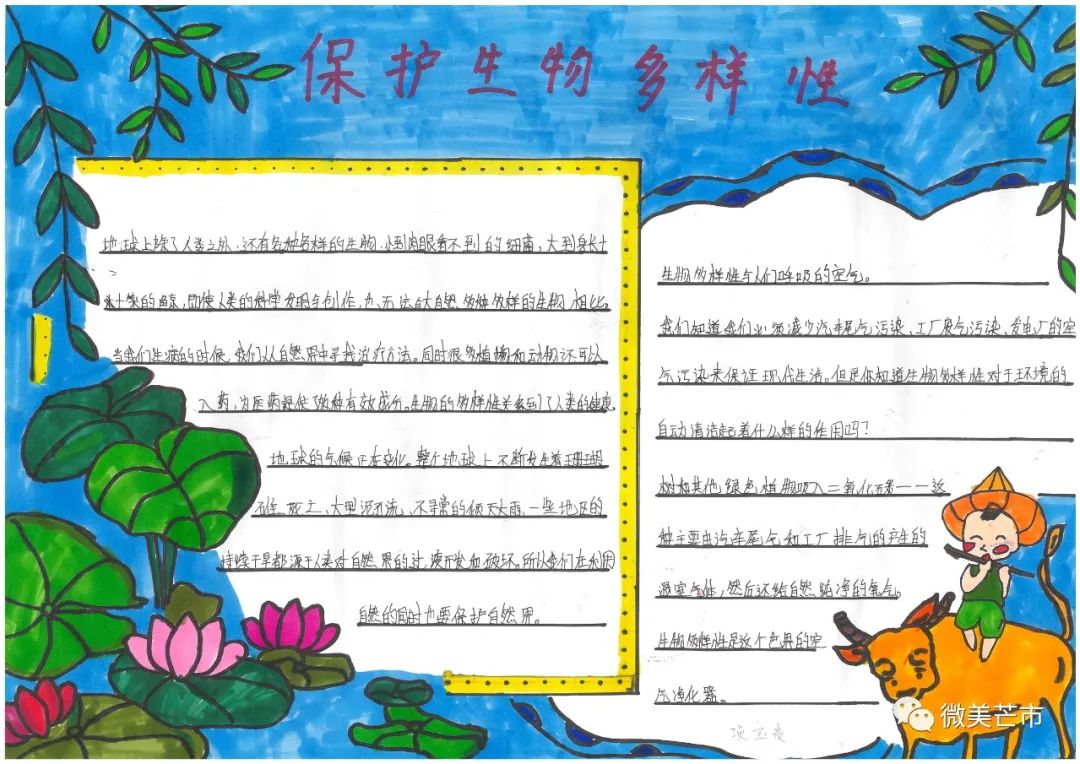 保护生物多样性
地球上除了人类之外，还有各种各样的生物，小到肉眼看不到的细菌，大到身长十
米的鲸，即使人类的科学发明与创作，也无法与大自然多种多样的生物相比。
当我们生病的时候，我们从自然界中寻找治疗方法。同时很多植物和动物还可以
入药，为医药提供了多种有效成分。生物的多样性关系到了人类的健康
地球的气候正在变化。整个地球上不断发生着珊瑚
死亡、大型泥石流、不寻常的倾天大雨、一些地区的
持续干旱都源于人类对自然界的过度开发和破坏。所以我们在利用
自然的同时也要保护自然界。
生物多样性与人们呼吸的空气。
我们知道我们必须减少汽车尾气污染、工厂废气污染、发电厂的空
气污染来保证现代生活。但是你知道生物多样性对于环境的
自动清洁起着什么样的作用吗？
树和其他绿色植物吸入二氧化碳——这
种主要由汽车尾气和工厂排气的产生的
温室气体，然后还给自然纯净的氧气。
生物多样性是这个世界的空
气净化器。
微美芒市